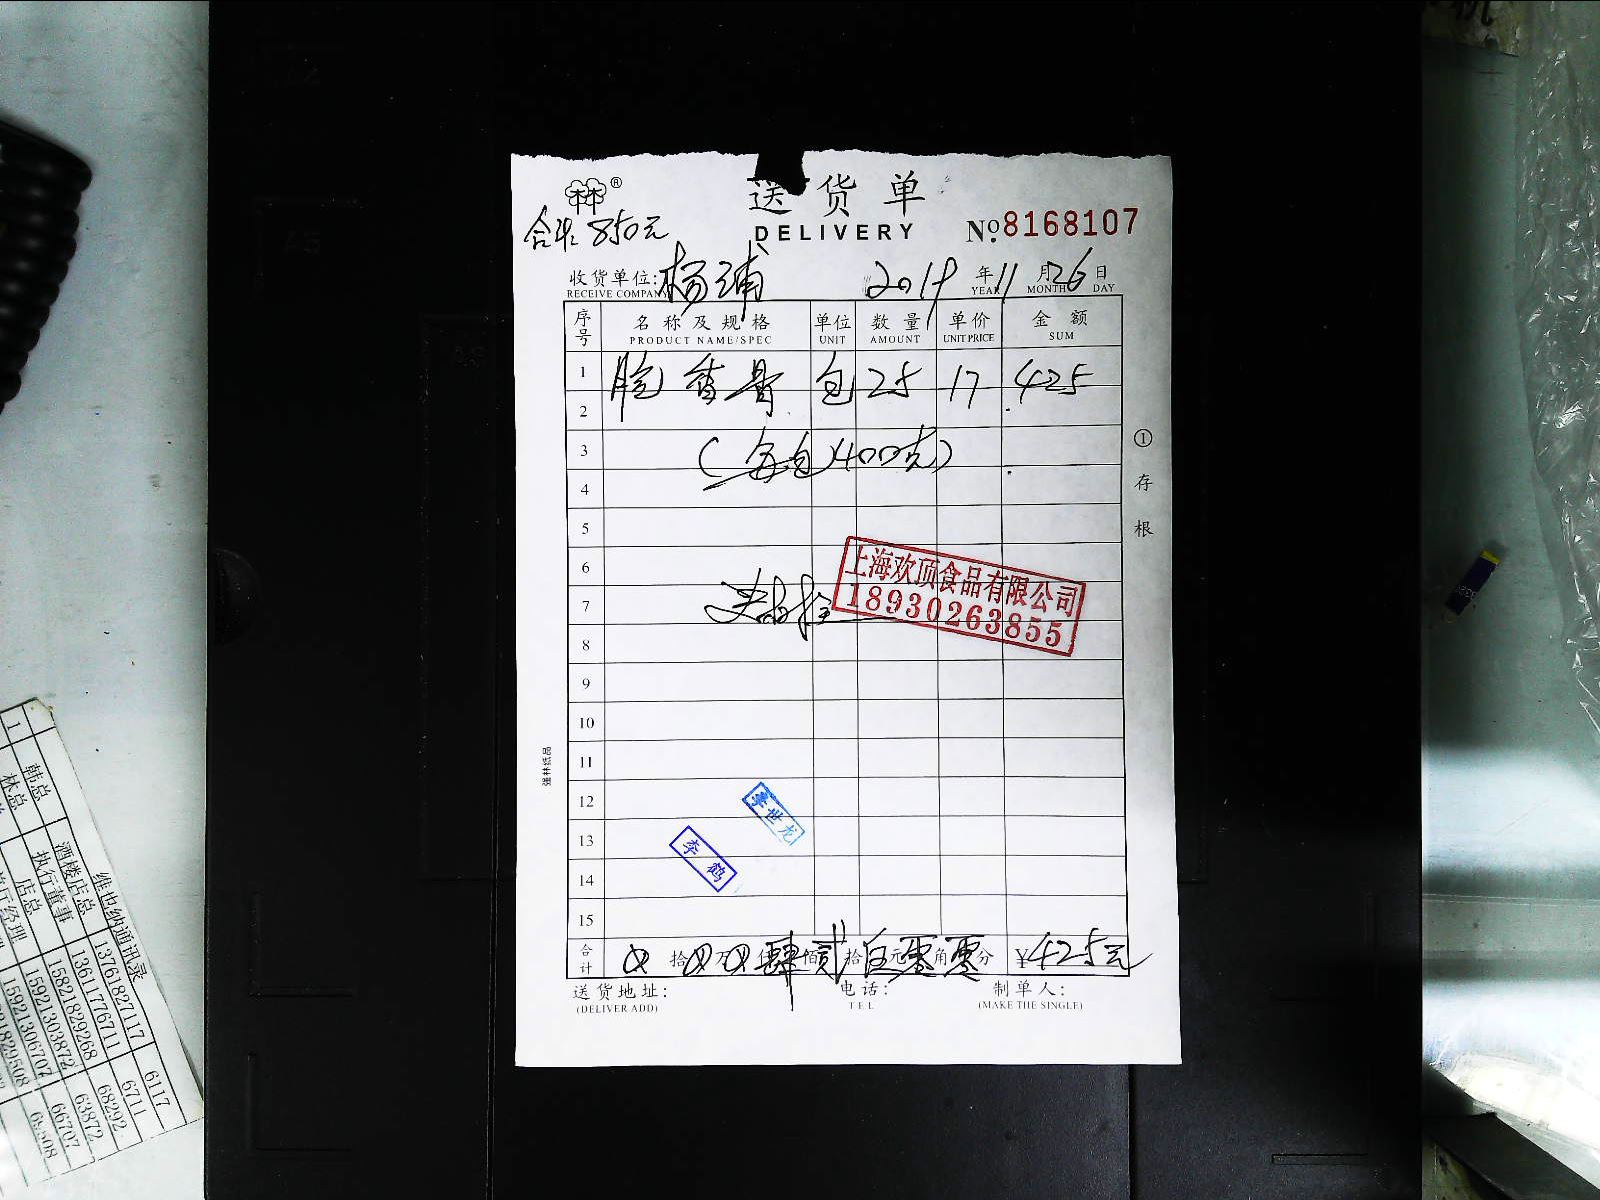 林®
送货单
合计: 850元
DELIVERY
No.8168107
收货单位: 杨浦 2019年11月26日
RECEIVE COMPANY YEAR MONTH DAY
序号 名称及规格 单位 数量 单价 金额
PRODUCT NAME/SPEC UNIT AMOUNT UNIT PRICE SUM
1 包 25 17 425
2
3 (每包400克)
4
5
6
7
8
9
10
11
12
13
14
15
①存根
上海欢顶食品有限公司
18930263855
强林纸品
李世龙
李鹤
合计 拾万仟肆佰贰拾伍元零角零分 ¥425元
送货地址: 电话: 制单人:
(DELIVER ADD) TEL (MAKE THE SINGLE)
维也纳通讯录
酒楼店总 13761827117 6117
韩总 执行董事 13611776711 6711
林总 店总 15821829268 68292
15921303872 63872
15921306702 66707